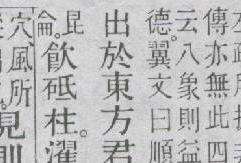 傳亦無此四
云八象則益
德。翼文曰順
出於東方君
昆
侖。飲砥柱。濯
穴。風所
見則